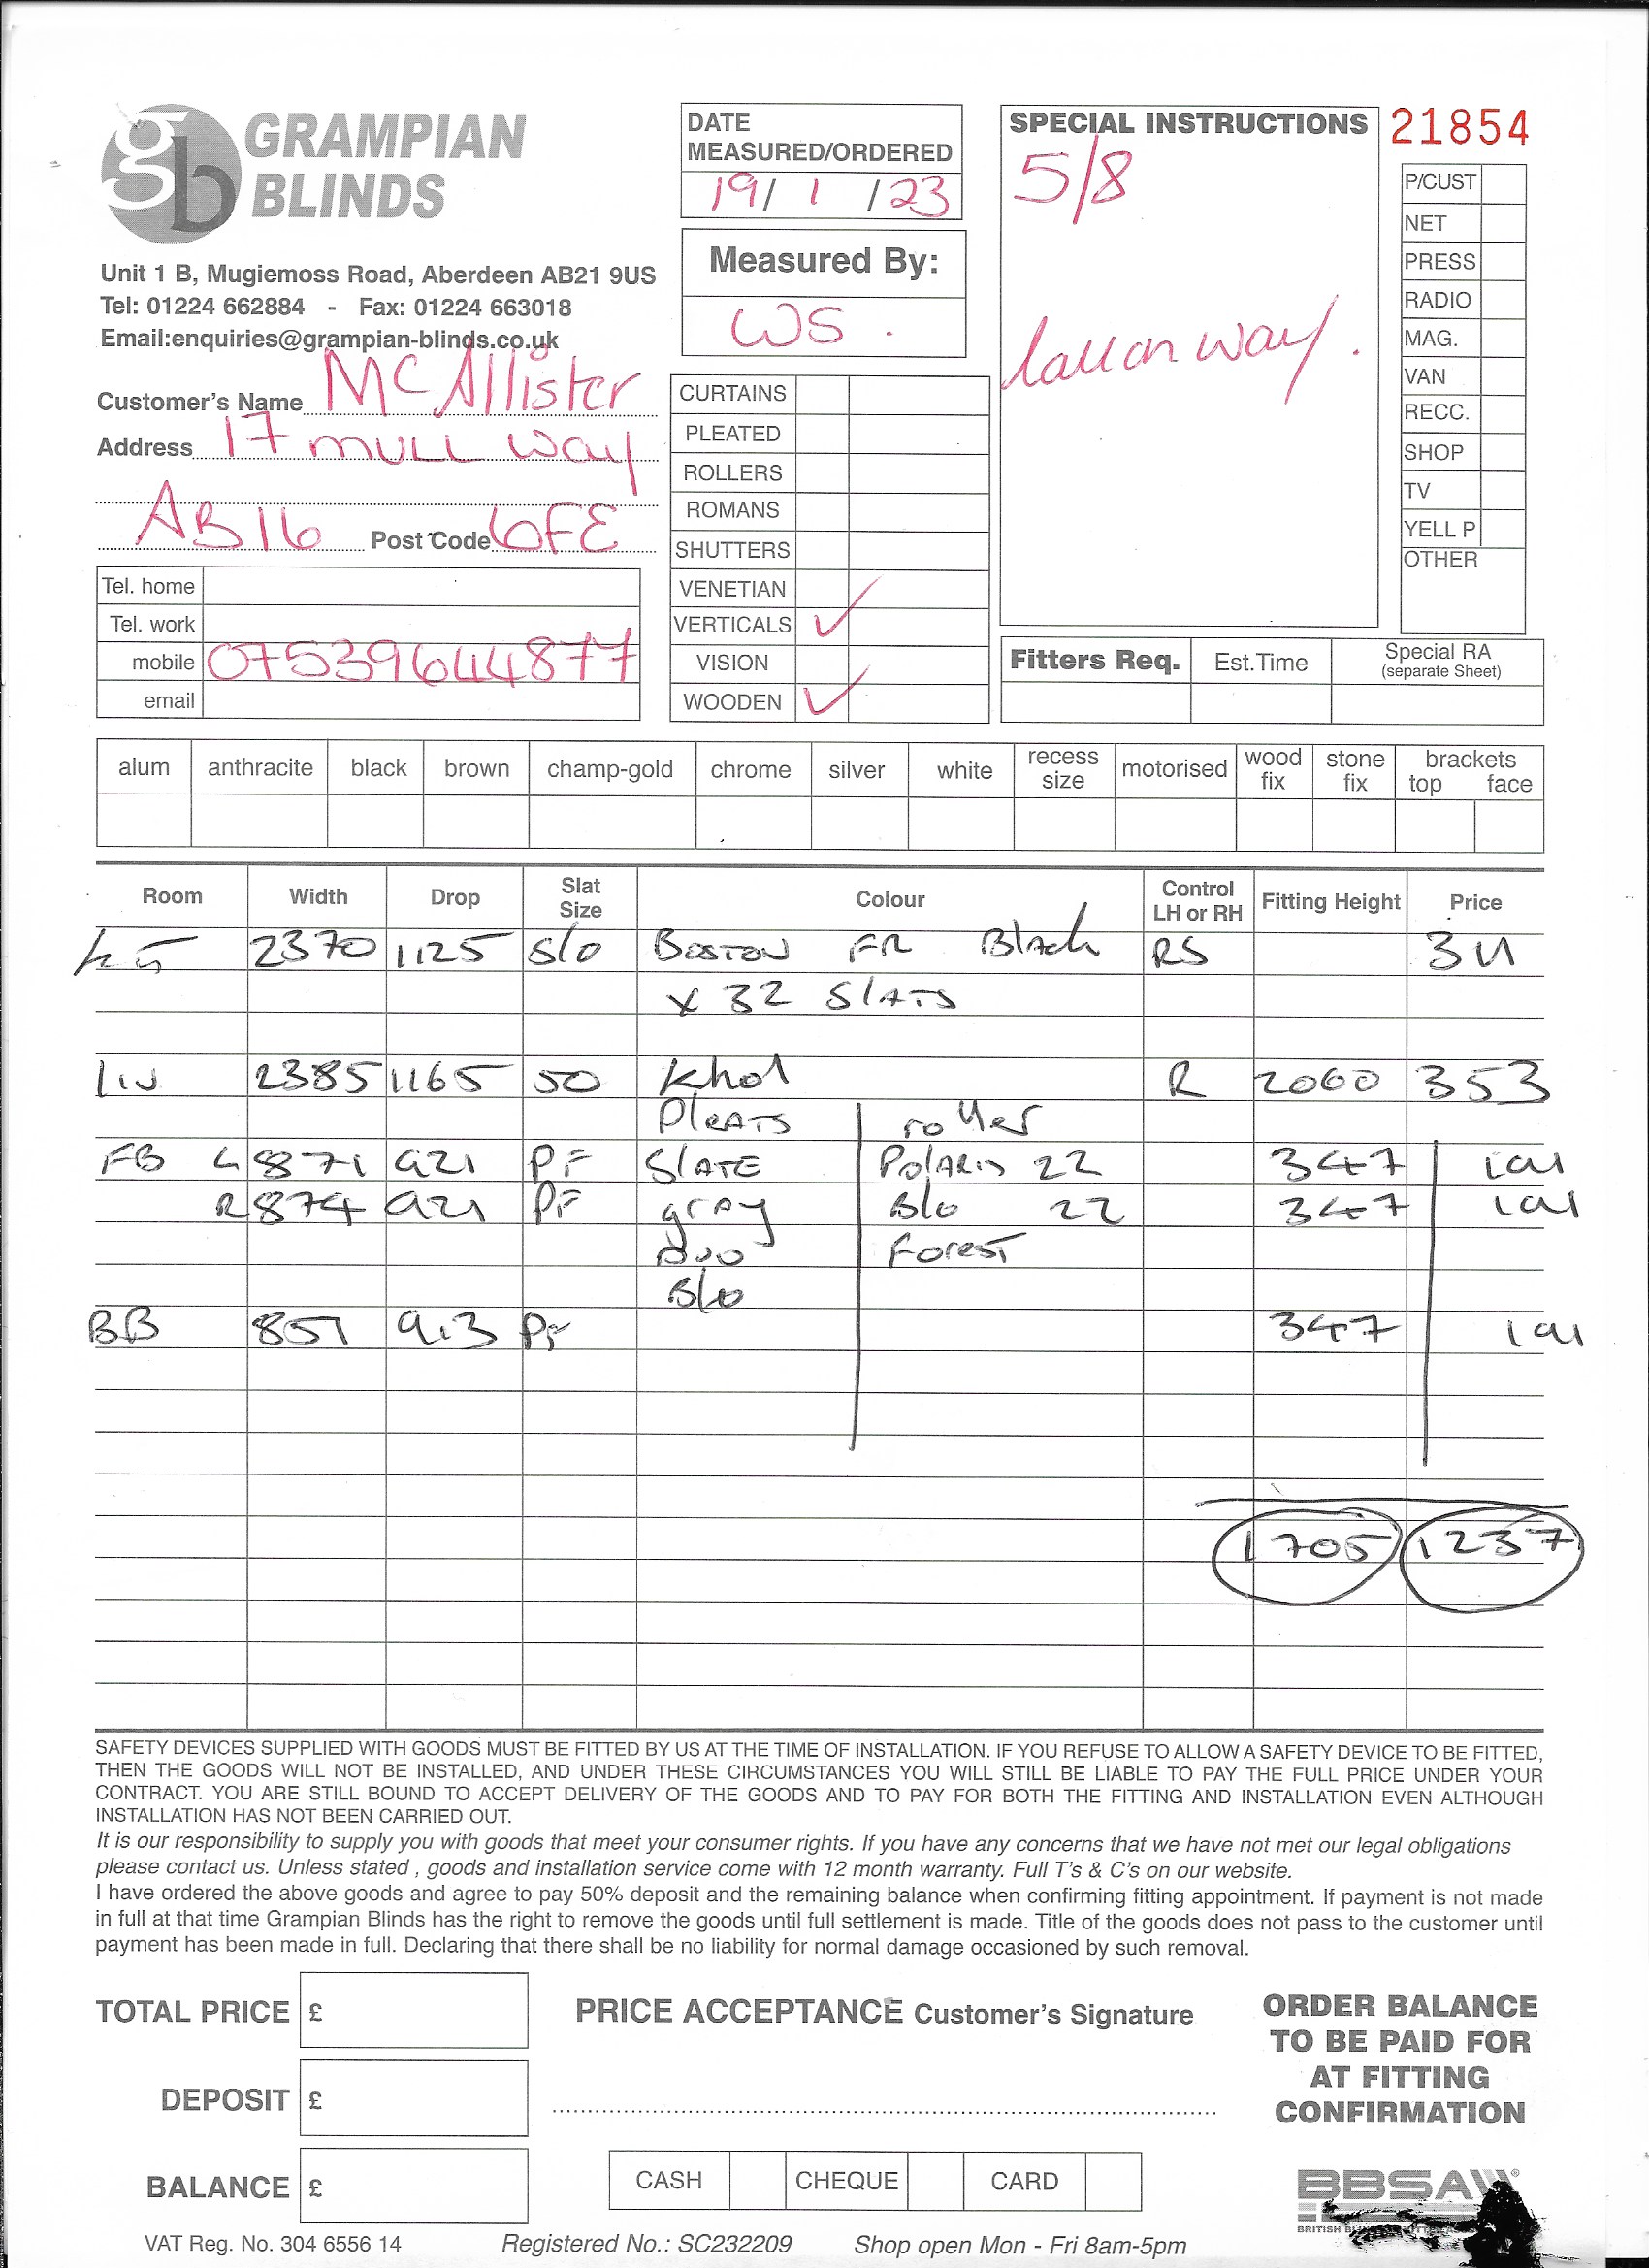 gb GRAMPIAN BLINDS
Unit 1 B, Mugiemoss Road, Aberdeen AB21 9US
Tel: 01224 662884 - Fax: 01224 663018
Email:enquiries@grampian-blinds.co.uk
Customer's Name McAllister
Address 17 mull way
AB16 Post Code 6FE
Tel. home
Tel. work
mobile 07539644877
email
DATE
MEASURED/ORDERED
19/ 1 /23
Measured By:
WS.
CURTAINS
PLEATED
ROLLERS
ROMANS
SHUTTERS
VENETIAN
VERTICALS ✓
VISION
WOODEN ✓
SPECIAL INSTRUCTIONS
5/8
Call on way.
21854
P/CUST
NET
PRESS
RADIO
MAG.
VAN
RECC.
SHOP
TV
YELL P
OTHER
Fitters Req. Est.Time Special RA
(separate Sheet)
alum anthracite black brown champ-gold chrome silver white recess size motorised wood fix stone fix brackets top face
Room Width Drop Slat Size Colour Control LH or RH Fitting Height Price
2370 1125 S/O BOSTON FR Black RS 311
x 32 SLATS
LIV 2385 1165 50 Khol R 2060 353
PLEATS roller
FB L 871 921 PF SLATE POLARIS 22 347 191
R 874 921 PF gray Blo 22 347 191
DUO Forest
Blo
BB 851 913 PF 347 191
1705 1237
SAFETY DEVICES SUPPLIED WITH GOODS MUST BE FITTED BY US AT THE TIME OF INSTALLATION. IF YOU REFUSE TO ALLOW A SAFETY DEVICE TO BE FITTED,
THEN THE GOODS WILL NOT BE INSTALLED, AND UNDER THESE CIRCUMSTANCES YOU WILL STILL BE LIABLE TO PAY THE FULL PRICE UNDER YOUR
CONTRACT. YOU ARE STILL BOUND TO ACCEPT DELIVERY OF THE GOODS AND TO PAY FOR BOTH THE FITTING AND INSTALLATION EVEN ALTHOUGH
INSTALLATION HAS NOT BEEN CARRIED OUT.
It is our responsibility to supply you with goods that meet your consumer rights. If you have any concerns that we have not met our legal obligations
please contact us. Unless stated , goods and installation service come with 12 month warranty. Full T's & C's on our website.
I have ordered the above goods and agree to pay 50% deposit and the remaining balance when confirming fitting appointment. If payment is not made
in full at that time Grampian Blinds has the right to remove the goods until full settlement is made. Title of the goods does not pass to the customer until
payment has been made in full. Declaring that there shall be no liability for normal damage occasioned by such removal.
TOTAL PRICE £
DEPOSIT £
BALANCE £
PRICE ACCEPTANCE Customer's Signature
CASH CHEQUE CARD
ORDER BALANCE
TO BE PAID FOR
AT FITTING
CONFIRMATION
BBSA
BRITISH
VAT Reg. No. 304 6556 14 Registered No.: SC232209 Shop open Mon - Fri 8am-5pm